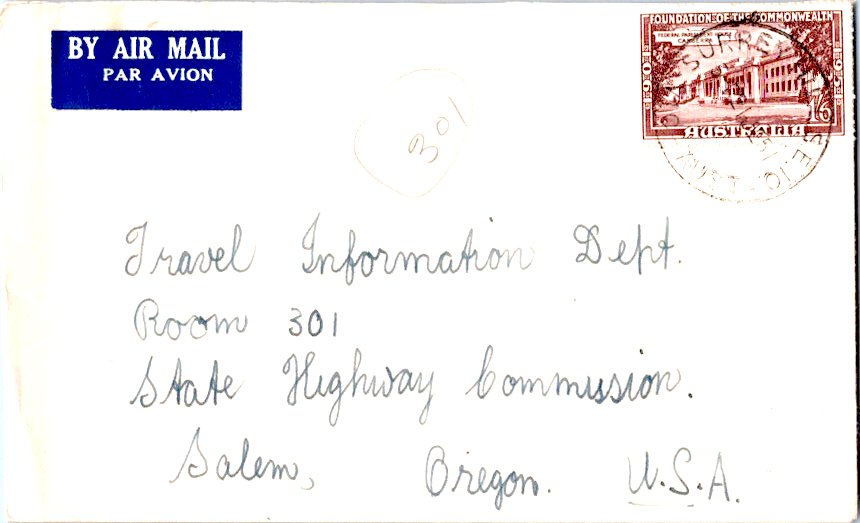 BY AIR MAIL
PAR AVION
301
FOUNDATION OF THE COMMONWEALTH
FEDERAL PARLIAMENT HOUSE
CANBERRA
1901
1951
1/6
AUSTRALIA
SURREY HILLS E.10
Travel Information Dept.
Room 301
State Highway Commission.
Salem, Oregon. U.S.A.